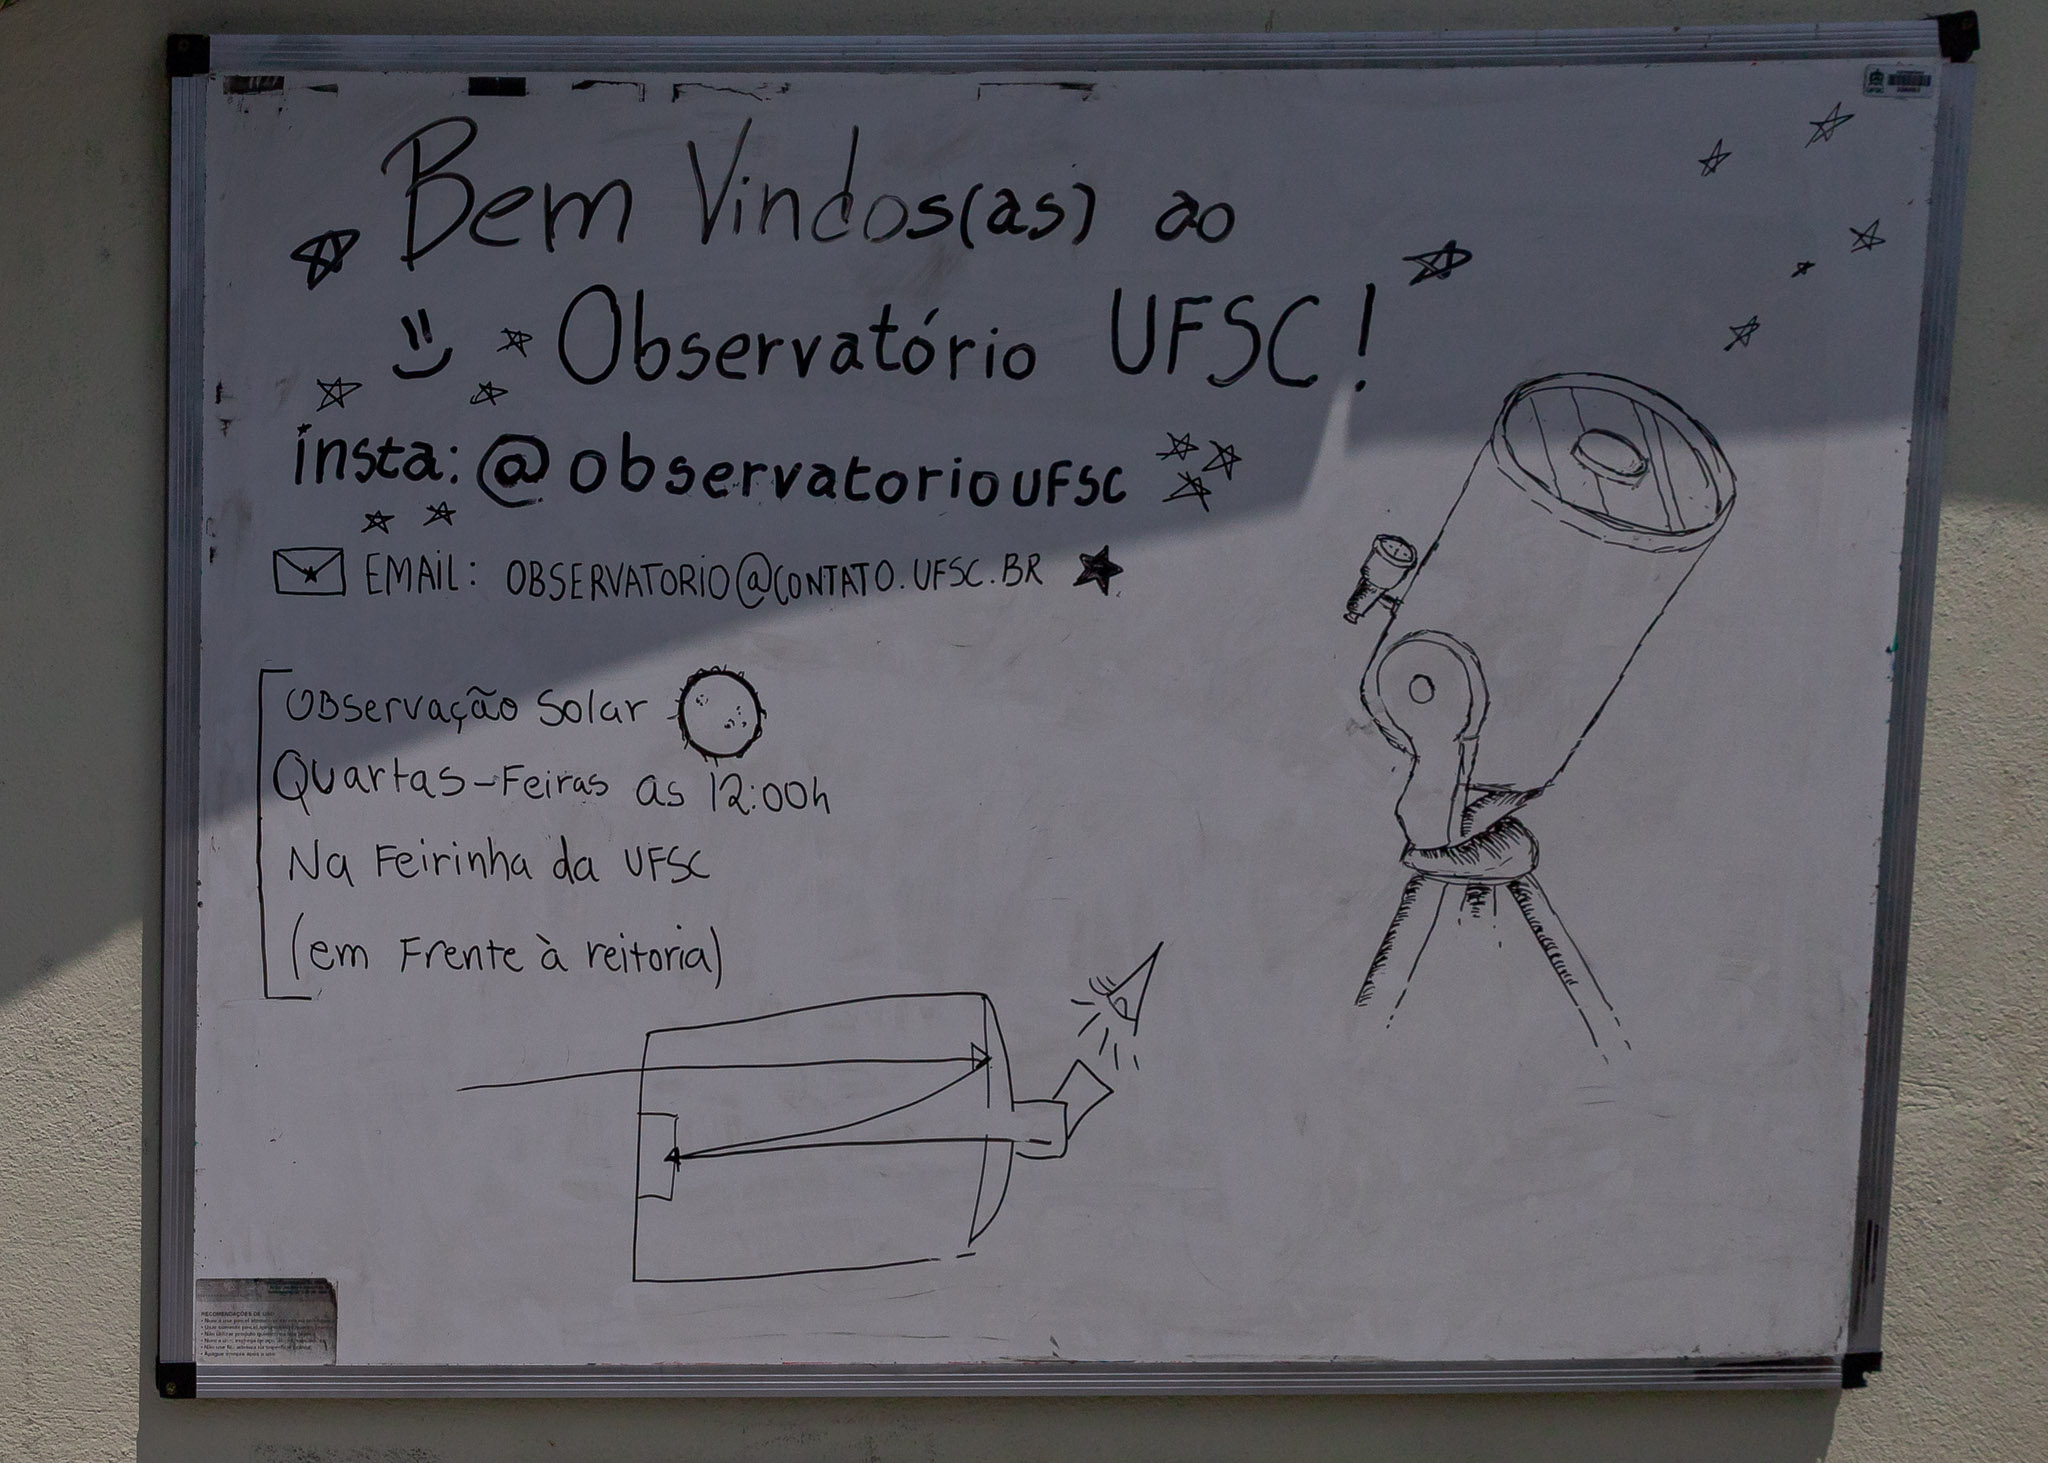 Bem Vindos(as) ao
Observatório UFSC!
insta: @observatorioUFSC
EMAIL: OBSERVATORIO@CONTATO.UFSC.BR
Observação Solar
Quartas-Feiras as 12:00h
Na Feirinha da UFSC
(em Frente à reitoria)
UFSC
RECOMENDAÇÕES DE USO